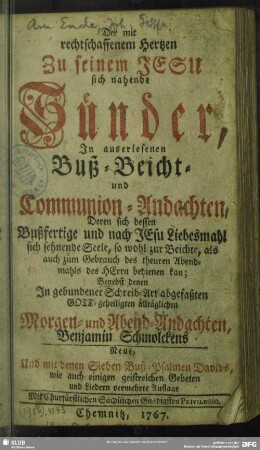 Am Ende, Joh.
Der mit
rechtschaffenem Hertzen
Zu seinem JESU
sich nahende
Sünder,
In auserlesenen
Buß-Beicht-
und
Communion-Andachten,
Deren sich dessen
Bußfertige und nach JEsu Liebesmahl
sich sehnende Seele, so wohl zur Beichte, als
auch zum Gebrauch des theuren Abend-
mahls des HErrn bedienen kan;
Benebst denen
In gebundener Schreib-Art abgefaßten
GOTT-geheiligten alltäglichen
Morgen- und Abend-Andachten,
Benjamin Schmolckens
Neue,
Und mit denen Sieben Buß-Psalmen Davids,
wie auch einigen geistreichen Gebeten
und Liedern vermehrte Auflage
Mit Churfürstlichen Sächsischen Gnädigsten PRIVILEGIO.
Chemnitz, 1767.
SLUB
DFG